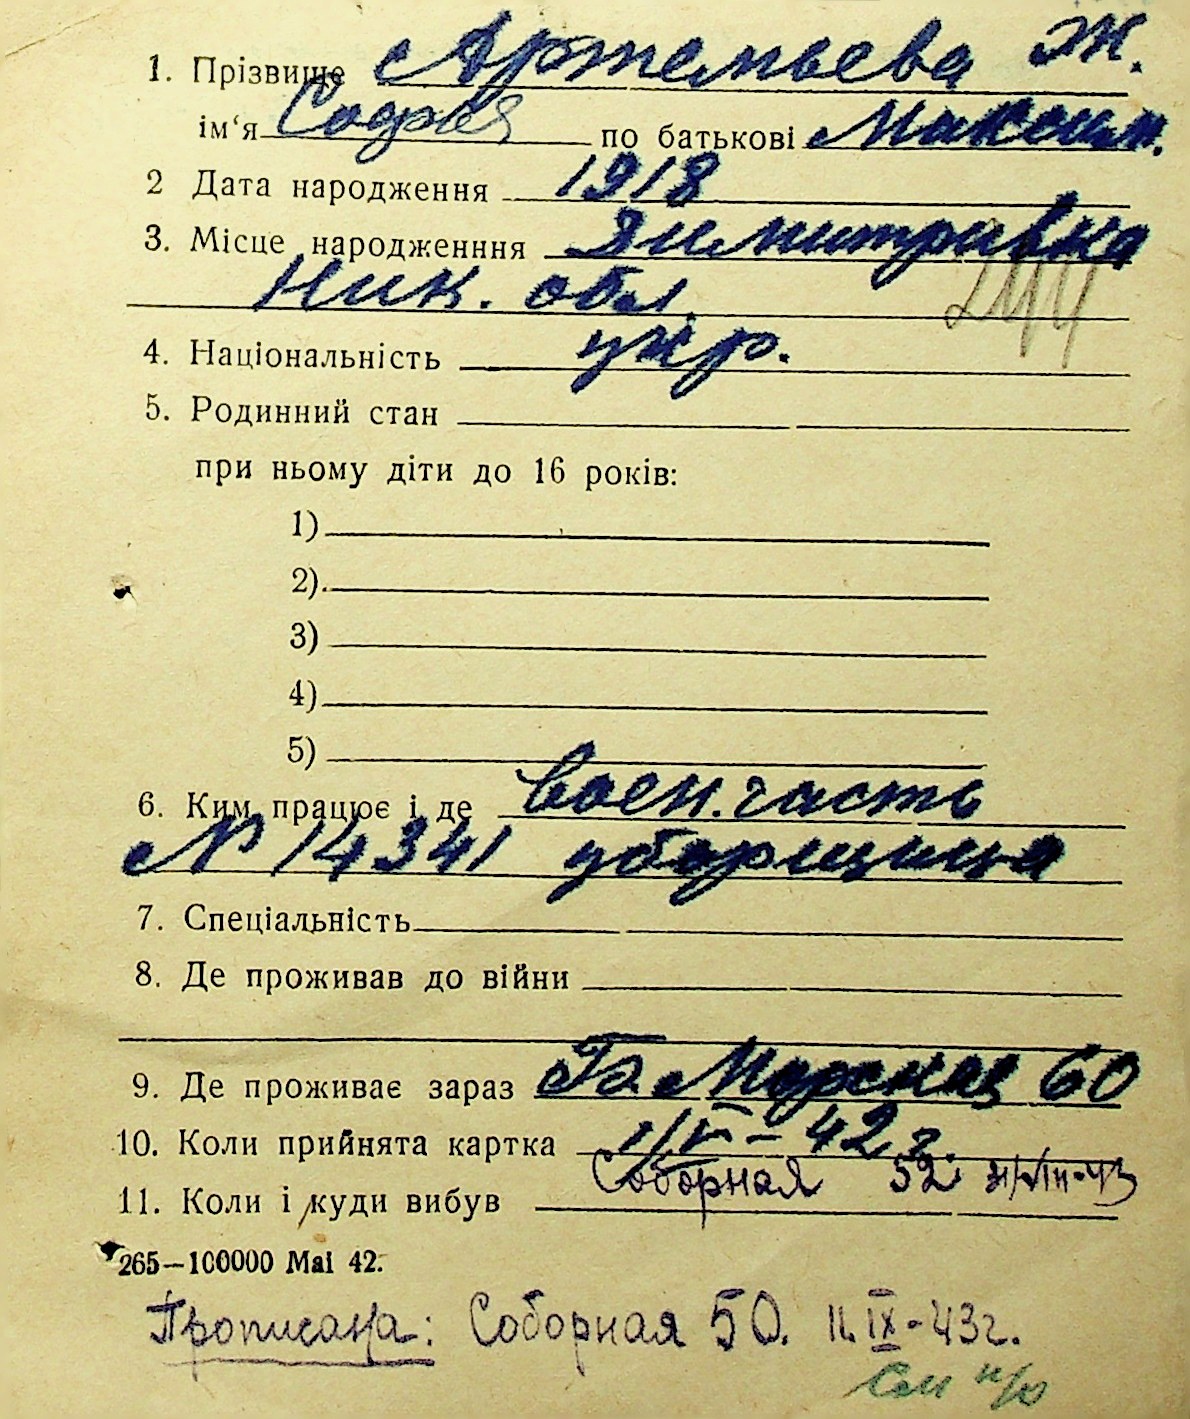 1. Прізвище Артемьева Ж.
ім‘я София по батькові Максим.
2 Дата народження 1918
3. Місце народженння Димитривка
Ник. обл.
4. Національність укр.
5. Родинний стан
при ньому діти до 16 років:
1)
2).
3)
4)
5)
6. Ким працює і де Воен. часть
№ 14341 уборщица
7. Спеціальність
8. Де проживав до війни
9. Де проживає зараз Б. Морская 60
10. Коли прийнята картка 42 г.
11. Коли і куди вибув Соборная 52
265—100000 Mai 42.
Прописана: Соборная 50. 11.IX-43г.
См н/о